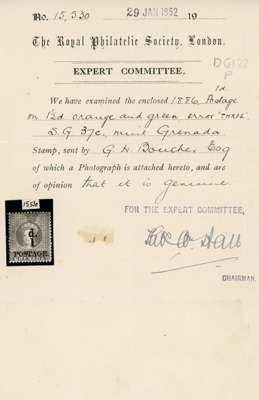 No. 15,330 29 JAN 1952 19
The Royal Philatelic Society, London.
EXPERT COMMITTEE.
We have examined the enclosed 1886 1d Postage
on 1½d. orange and green error "THRE"
S.G 37c, mint Grenada
Stamp, sent by G. H. Boucher Esq
of which a Photograph is attached hereto, and are
of opinion that it is genuine.
FOR THE EXPERT COMMITTEE,
CHAIRMAN.
d.
1
POSTAGE.